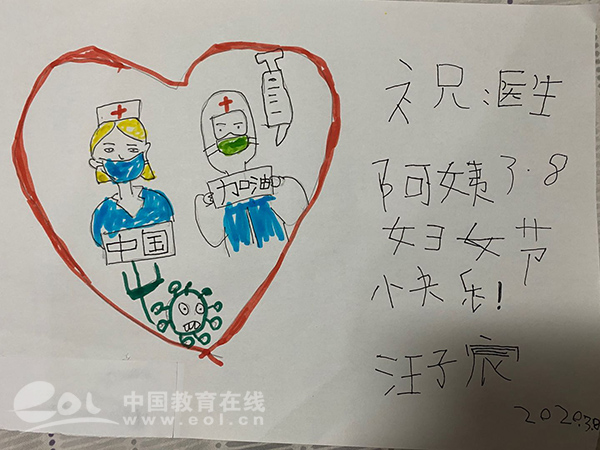 祝医生
阿姨3.8
妇女节
快乐!
汪子宸
2020.3.8
加油
中国
eol 中国教育在线
www.eol.cn